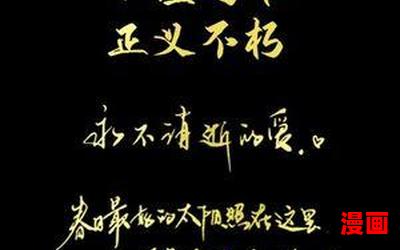 正义不朽
永不消逝的爱.
春日最好的太阳照在这里
漫画